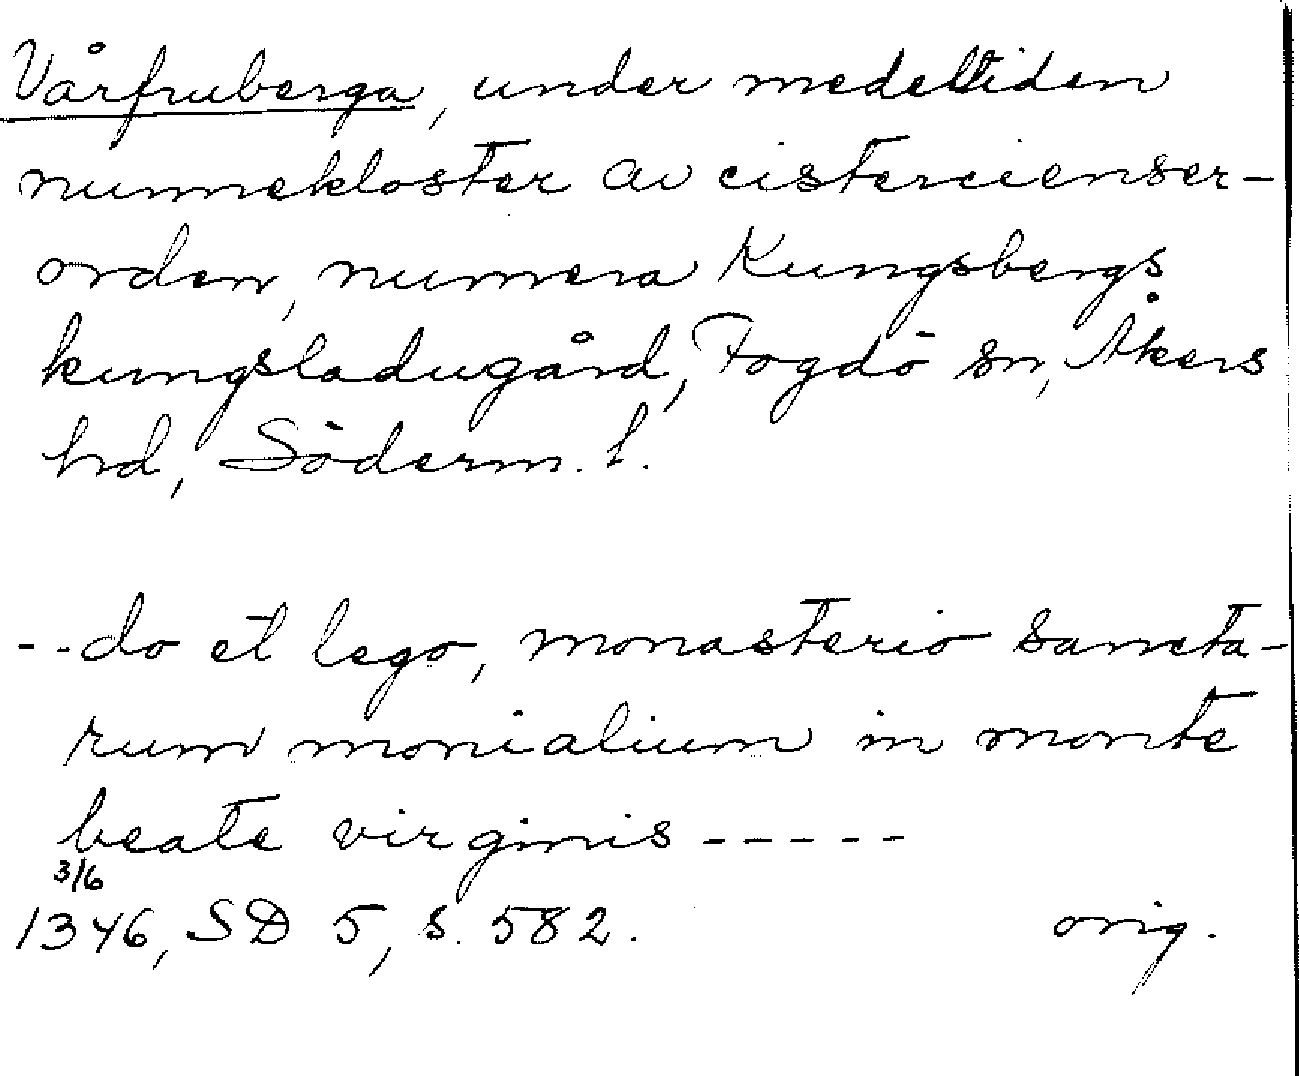 Vårfruberga, under medeltiden
nunnekloster av cistercienser-
orden, numera Kungsbergs
kungsladugård, Fogdö sn, Åkers
hd, Söderm. l.
--do et lego, monasterio sancta-
rum monialium in monte
beate virginis-----
3/6
1346, SD 5, s. 582. orig.